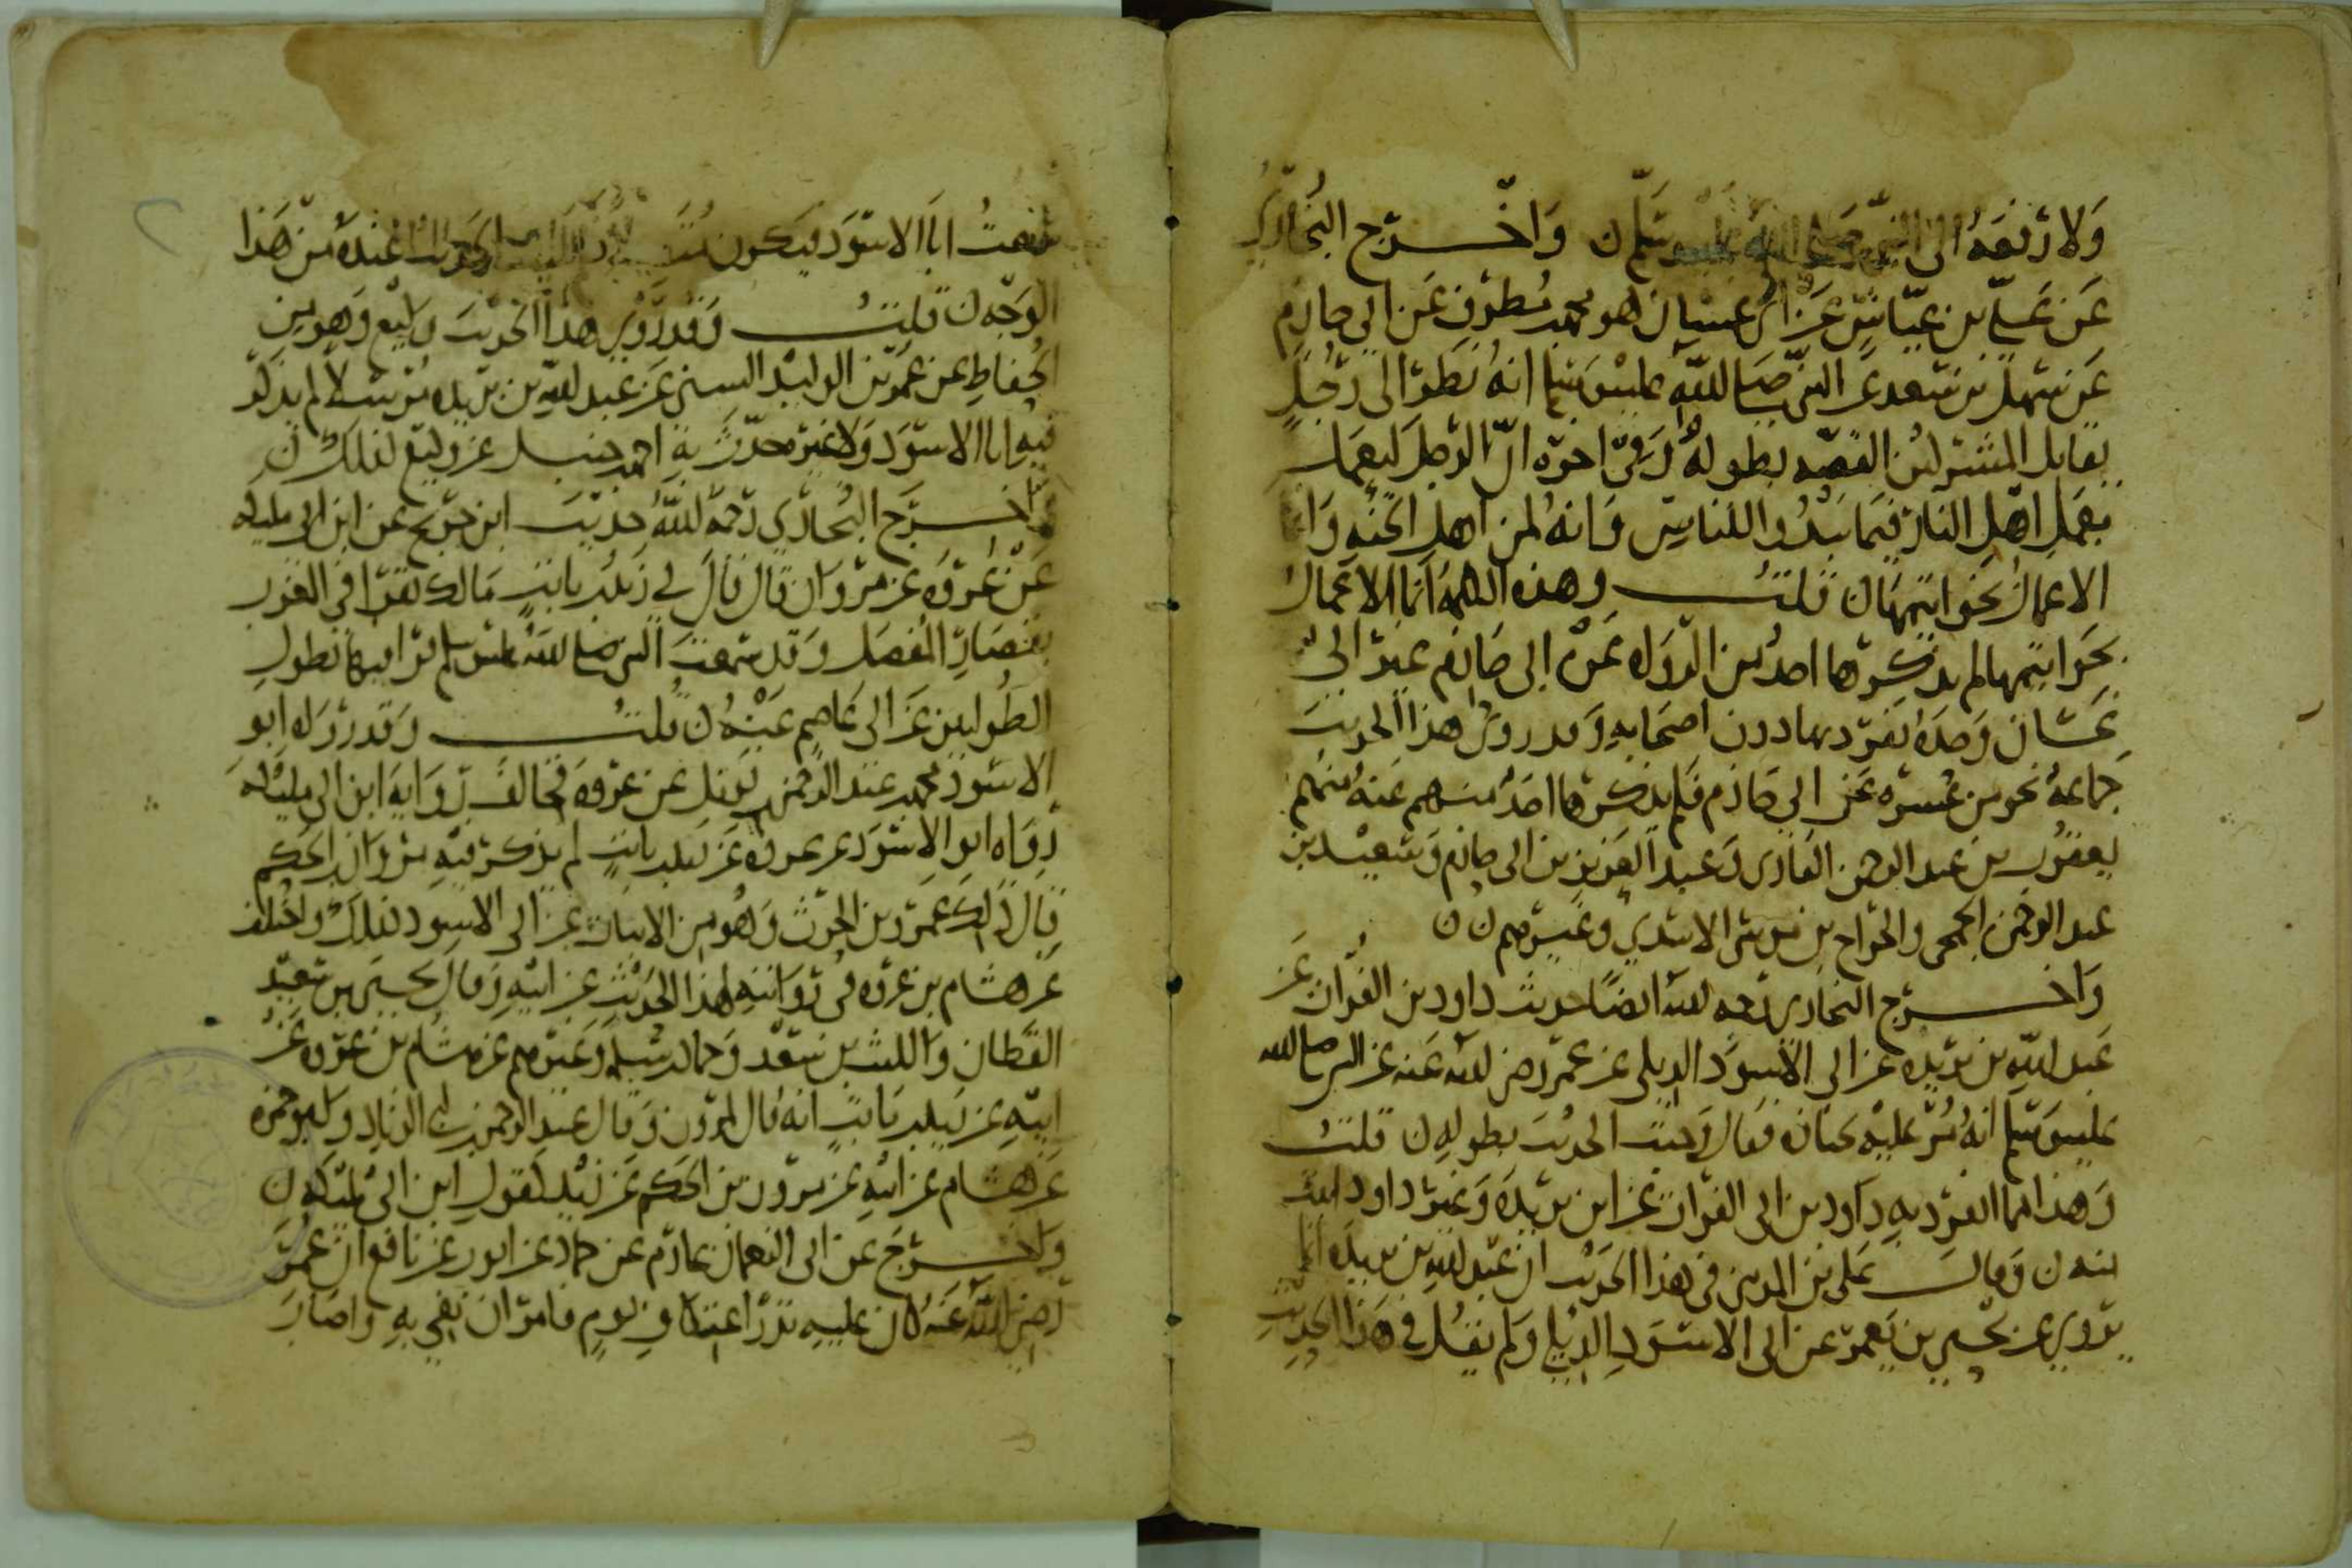 ولا رفعه الى النبي صلى الله عليه وسلم ن واخرج البخاري
عن علي بن عياش عن ابي غسان هو محمد بن مطرف عن ابي حازم
عن سهل بن سعد عن النبي صلى الله عليه وسلم انه نظر الى رجل
يقاتل المشركين القصه بطوله وفي اخره ان الرجل ليعمل
بعمل اهل النار فيما يبدوا للناس وانه لمن اهل الجنه وانما
الاعمال بخواتيمها ن قلت وهذه الكلمه انما الاعمال
بخواتيمها لم يذكرها احد من الرواه عن ابي حازم غير ابي
غسان وحده تفرد بها دون اصحابه وقد روى هذا الحديث
جماعة نحو من عشره عن ابي حازم فلم يذكرها احد منهم عنه منهم
يعقوب بن عبد الرحمن القاري وعبد العزيز بن ابي حازم وسعيد بن
عبد الرحمن الجمحي والجراح بن موسى الاسدي وغيرهم ن ن
واخرج البخاري رحمه الله ايضا حديث داود بن الفرات عن
عبد الله بن بريده عن ابي الاسود الديلي عن عمر رضي الله عنه عن النبي صلى الله
عليه وسلم انه مر عليه بجنازه فقال وجبت الحديث بطوله ن قلت
وهذا مما انفرد به داود بن ابي الفرات عن ابن بريده وغير داود اثبت
منه ن وقال علي بن المديني في هذا الحديث ان عبد الله بن بريده انما
يروي عن يحيى بن يعمر عن ابي الاسود الديلي ولم يقل في هذا الحديث
سمعت ابا الاسود فيكون عنده من هذا
الوجه ن قلت وقد روى هذا الحديث وكيع وهو من
الحفاظ عن عمر بن الوليد السني عن عبد الله بن بريده مرسلا لم يذكر
فيه ابا الاسود ولا غيره حدث به احمد بن حنبل عن وكيع لذلك ن
واخرج البخاري رحمه الله حديث ابن جريج عن ابن ابي مليكه
عن عروه عن مروان قال قال لي زيد بن ثابت مالك تقرا في المغرب
بقصار المفصل وقد سمعت النبي صلى الله عليه وسلم يقرا فيها بطول
الطوليين عن ابي عاصم عنه ن قلت وقد رواه ابو
الاسود محمد بن عبد الرحمن بن نوفل عن عروه فخالف رواية ابن ابي مليكه
رواه ابو الاسود عن عروه عن زيد بن ثابت لم يذكر فيه مروان بن الحكم
قال ذلك عمرو بن الحرث وهو من الاثبات عن ابي الاسود كذلك واختلف
عن هشام بن عروه في روايته لهذا الحديث عن ابيه وقال يحيى بن سعيد
القطان والليث بن سعد وحماد بن سلمه وغيرهم عن هشام بن عروه عن
ابيه عن زيد بن ثابت انه قال لمروان وقال عبد الرحمن بن ابي الزناد وابو حمزه
عن هشام عن ابيه عن مروان بن الحكم عن زيد كقول ابن ابي مليكه ن
واخرج عن ابي النعمان عارم عن حماد عن ايوب عن نافع ان عمر
رضي الله عنه كان عليه نذر اعتكاف يوم فامر ان يفي به واصاب